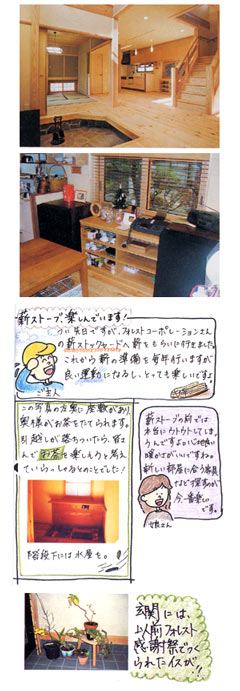 薪ストーブ、楽しんでいます！
つい先日ですが、フォレストコーポレーションさん
の薪ストックヤードへ薪をもらいに行きました。
これから薪の準備を毎年行いますが
良い運動になるし、とっても楽しいですよ。
ご主人
この写真の左奥に座敷があり、
奥様がお茶をたてられます。
引越しが落ちついたら、皆さ
んでお茶を楽しもうと考え
ていらっしゃるとのことでした！
階段下には水屋を。
薪ストーブの前では
本当にウトウトしてしま
うんですよ。心地良い
暖かさがいいですね。
新しい部屋に合う家具
なども探すのが
今一番楽しい
です。
娘さん
玄関には、
以前フォレスト
感謝祭でつく
られたイスが!!